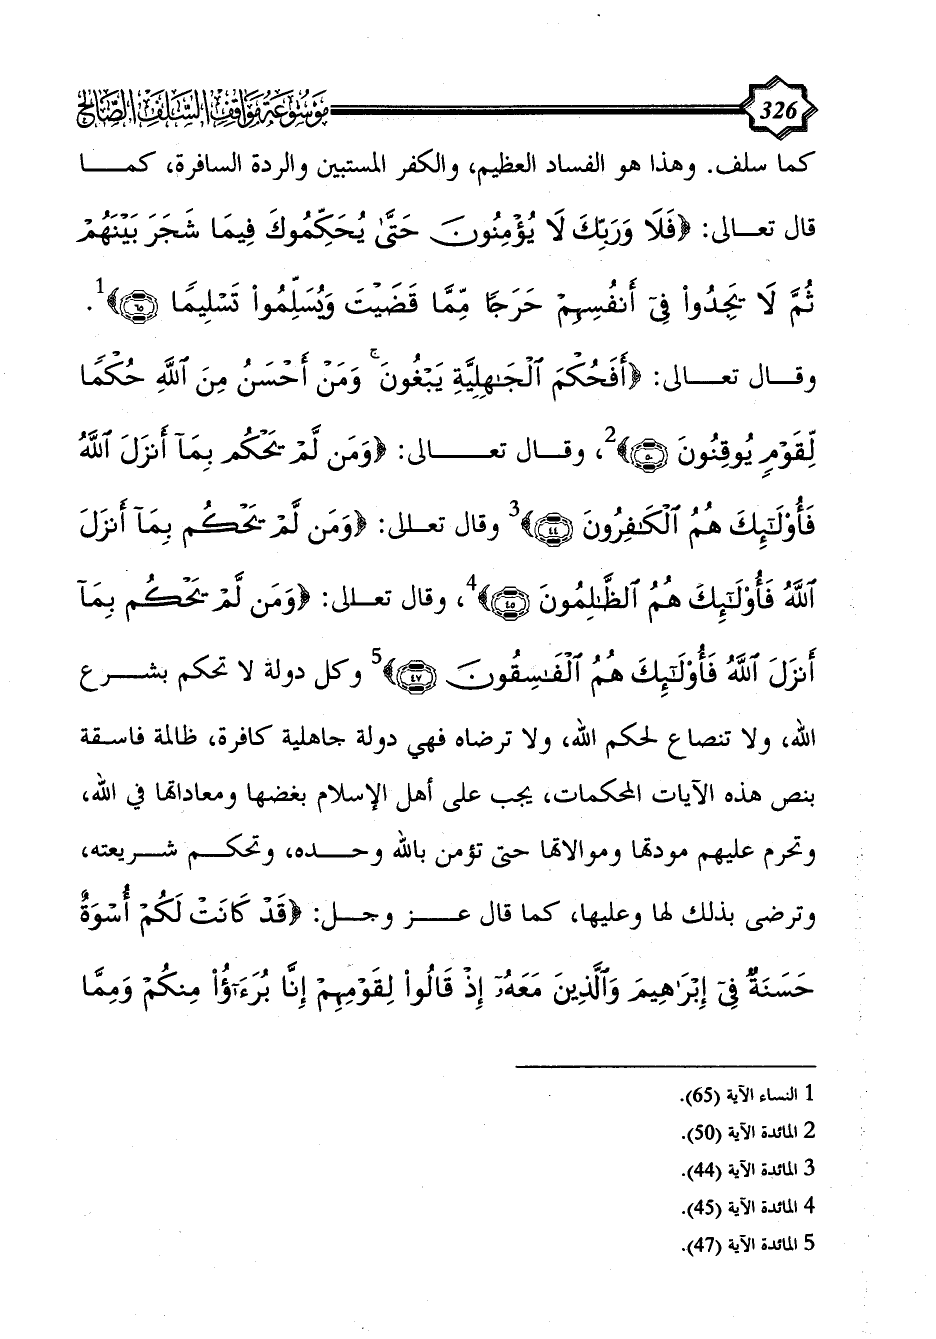 326 موسوعة مواقف السلف الصالح
كما سلف. وهذا هو الفساد العظيم، والكفر المستبين والردة السافرة، كمــا
قال تعــالى: ﴿فَلَا وَرَبِّكَ لَا يُؤْمِنُونَ حَتَّىٰ يُحَكِّمُوكَ فِيمَا شَجَرَ بَيْنَهُمْ
ثُمَّ لَا يَجِدُوا۟ فِىٓ أَنفُسِهِمْ حَرَجًا مِّمَّا قَضَيْتَ وَيُسَلِّمُوا۟ تَسْلِيمًا ٦٥﴾1.
وقــال تعــالى: ﴿أَفَحُكْمَ ٱلْجَـٰهِلِيَّةِ يَبْغُونَ ۚ وَمَنْ أَحْسَنُ مِنَ ٱللَّهِ حُكْمًا
لِّقَوْمٍ يُوقِنُونَ ٥٠﴾2، وقــال تعــــالى: ﴿وَمَن لَّمْ يَحْكُم بِمَآ أَنزَلَ ٱللَّهُ
فَأُو۟لَـٰٓئِكَ هُمُ ٱلْكَـٰفِرُونَ ٤٤﴾3 وقال تعــالى: ﴿وَمَن لَّمْ يَحْكُم بِمَآ أَنزَلَ
ٱللَّهُ فَأُو۟لَـٰٓئِكَ هُمُ ٱلظَّـٰلِمُونَ ٤٥﴾4، وقال تعــالى: ﴿وَمَن لَّمْ يَحْكُم بِمَآ
أَنزَلَ ٱللَّهُ فَأُو۟لَـٰٓئِكَ هُمُ ٱلْفَـٰسِقُونَ ٤٧﴾5 وكل دولة لا تحكم بشــرع
الله، ولا تنصاع لحكم الله، ولا ترضاه فهي دولة جاهلية كافرة، ظالمة فاسقة
بنص هذه الآيات المحكمات، يجب على أهل الإسلام بغضها ومعاداتها في الله،
وتحرم عليهم مودتها وموالاتها حتى تؤمن بالله وحــده، وتحكــم شــريعته،
وترضى بذلك لها وعليها، كما قال عــز وجــل: ﴿قَدْ كَانَتْ لَكُمْ أُسْوَةٌ
حَسَنَةٌ فِىٓ إِبْرَٰهِيمَ وَٱلَّذِينَ مَعَهُۥٓ إِذْ قَالُوا۟ لِقَوْمِهِمْ إِنَّا بُرَءَٰٓؤُا۟ مِنكُمْ وَمِمَّا
1 النساء الآية (65).
2 المائدة الآية (50).
3 المائدة الآية (44).
4 المائدة الآية (45).
5 المائدة الآية (47).